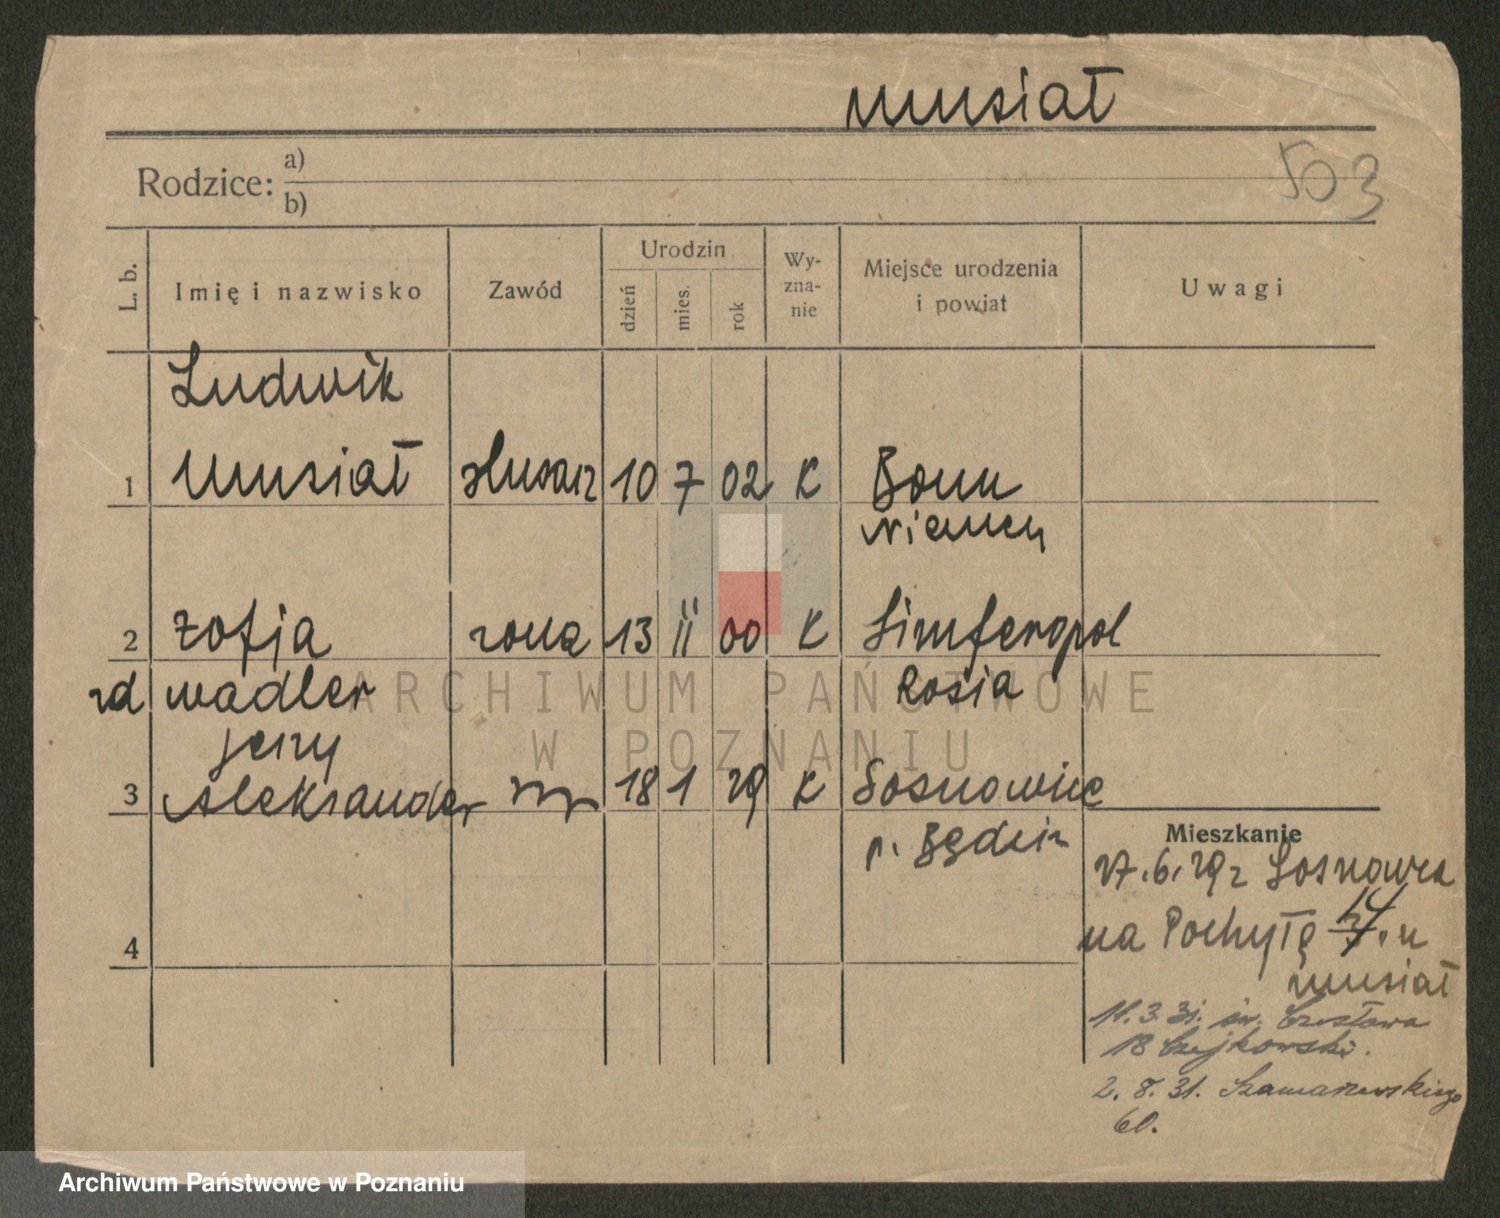 Musiał
503
Rodzice: a)
b)
L. b. Imię i nazwisko Zawód Urodzin dzień mies. rok Wy-zna-nie Miejsce urodzenia i powiat Uwagi
Ludwik
1 Musiał ślusarz 10 7 02 K Bonn
Niemcy
2 Zofja żona 13 II 00 K Simferopol
zd Wadler Rosia
Jerzy
3 Aleksander 18 1 29 K Sosnowice
p. Będzin
Mieszkanie
27.6.29 z Sosnowca
na Pochyłą 14. u
Musiał
4
11.3.31. św. Czesława
18 Czajkowski.
2. 8. 31. Szamarzewskiego
60.
ARCHIWUM PAŃSTWOWE
W POZNANIU
Archiwum Państwowe w Poznaniu